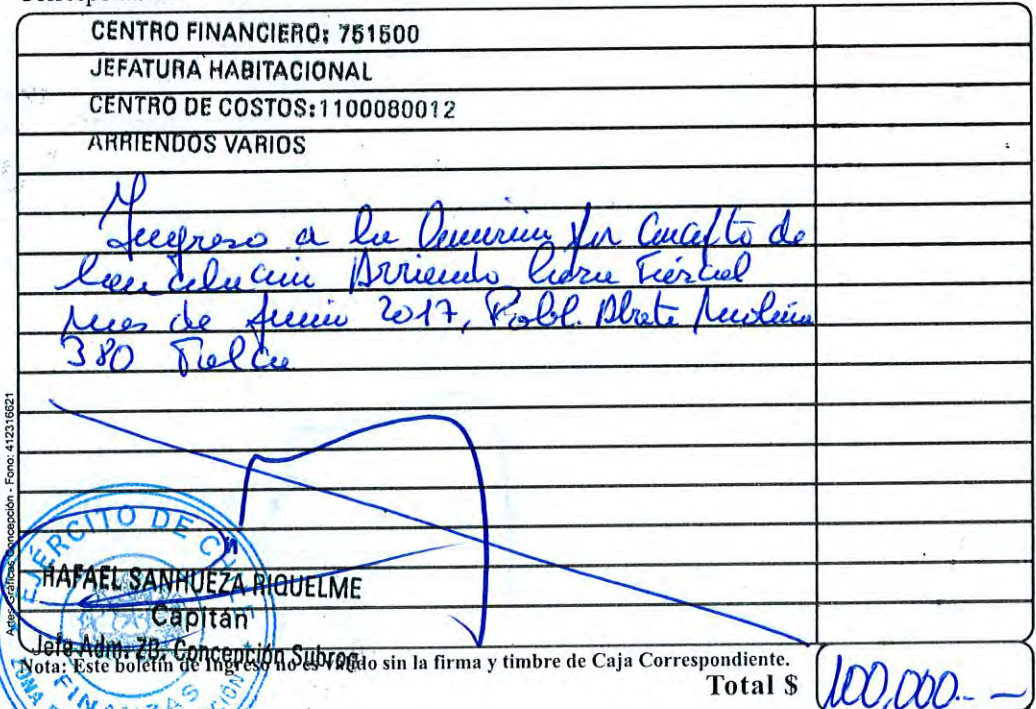 CENTRO FINANCIERO: 751500
JEFATURA HABITACIONAL
CENTRO DE COSTOS:1100080012
ARRIENDOS VARIOS
Ingreso a la por Concepto de
Arriendo Fiscal
mes de Junio 2017, Pobl. Abate Molina
380 Talca
Artes Gráficas Concepción - Fono: 412316621
EJÉRCITO DE
RAFAEL SANHUEZA RIQUELME
Capitán
Jefe Adm. ZB. Concepción Subrog.
Nota: Este boletín de Ingreso no es válido sin la firma y timbre de Caja Correspondiente.
FINANZAS
Total $ 100,000.-